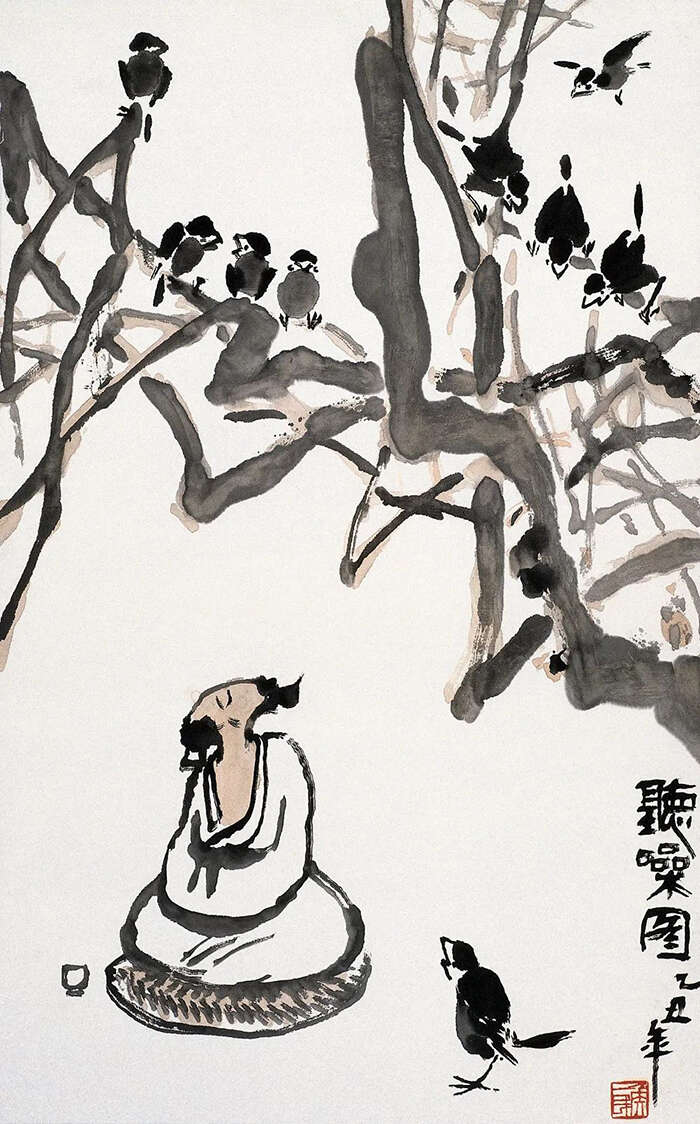 聽噪圖
乙丑年